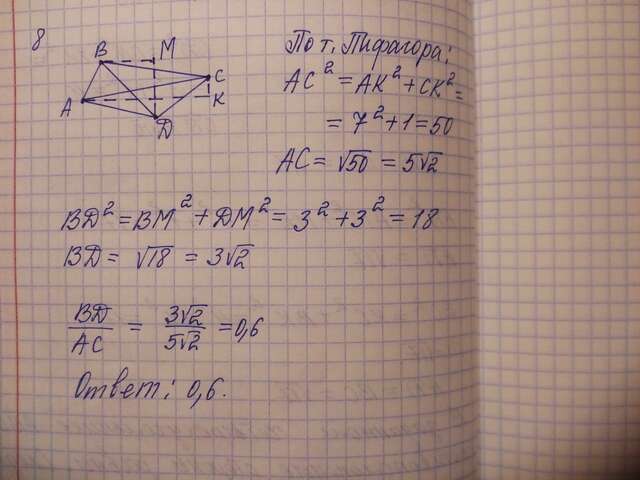 8
B
M
C
A
K
D
По т. Пифагора:
AC² = AK² + CK² =
= 7² + 1 = 50
AC = √50 = 5√2
BD² = BM² + DM² = 3² + 3² = 18
BD = √18 = 3√2
BD/AC = 3√2/5√2 = 0,6
Ответ: 0,6.